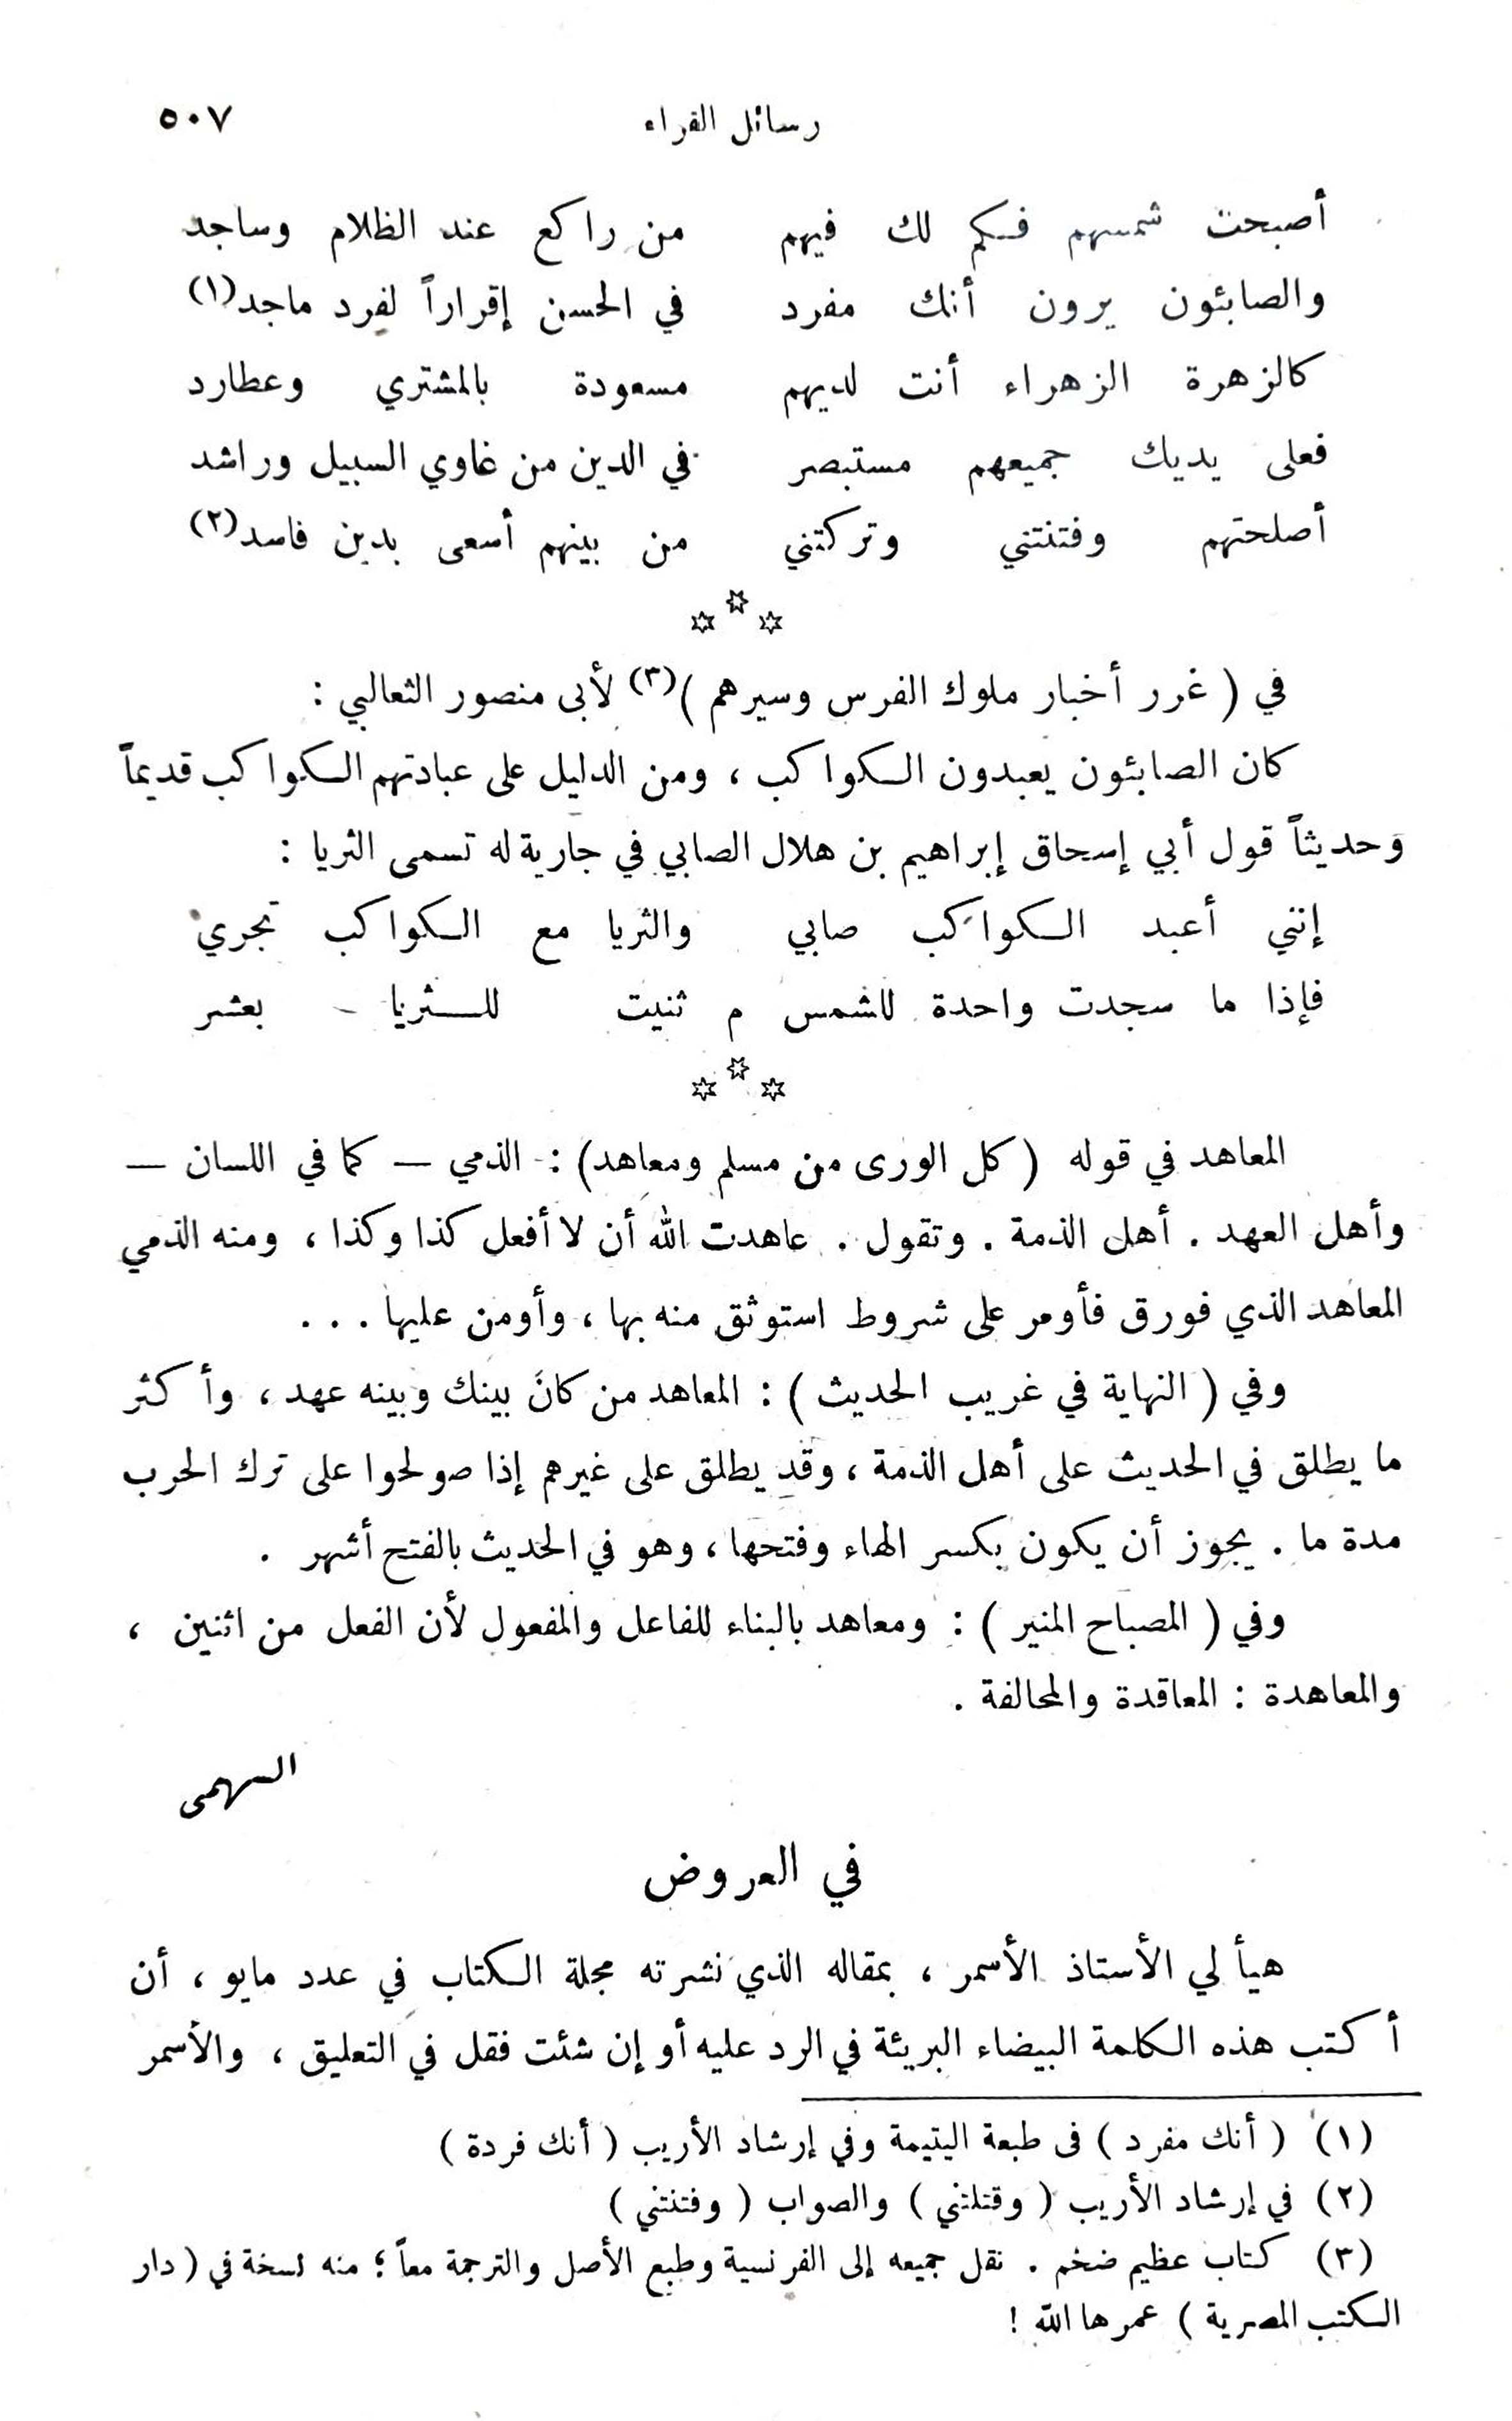 رسائل القراء ٥٠٧
أصبحت شمسهم فكم لك فيهم من راكع عند الظلام وساجد
والصابئون يرون أنك مفرد في الحسن إقراراً لفرد ماجد(١)
كالزهرة الزهراء أنت لديهم مسعودة بالمشتري وعطارد
فعلى يديك جميعهم مستبصر في الدين من غاوي السبيل وراشد
أصلحتهم وفتنتني وتركتني من بينهم أسعى بدين فاسد(٢)
في ( غرر أخبار ملوك الفرس وسيرهم )(٣) لأبى منصور الثعالبي :
كان الصابئون يعبدون الكواكب ، ومن الدليل على عبادتهم الكواكب قديماً
وحديثاً قول أبي إسحاق إبراهيم بن هلال الصابي في جارية له تسمى الثريا :
إنني أعبد الكواكب صابي والثريا مع الكواكب تجري
فإذا ما سجدت واحدة للشمس م ثنيت للثريا بعشر
المعاهد في قوله ( كل الورى من مسلم ومعاهد) : الذمي — كما في اللسان —
وأهل العهد . أهل الذمة . وتقول . عاهدت الله أن لا أفعل كذا وكذا ، ومنه الذمي
المعاهد الذي فورق فأومر على شروط استوثق منه بها ، وأومن عليها . . .
وفي ( النهاية في غريب الحديث ) : المعاهد من كانَ بينك وبينه عهد ، وأكثر
ما يطلق في الحديث على أهل الذمة ، وقد يطلق على غيرهم إذا صولحوا على ترك الحرب
مدة ما . يجوز أن يكون بكسر الهاء وفتحها ، وهو في الحديث بالفتح أشهر .
وفي ( المصباح المنير ) : ومعاهد بالبناء للفاعل والمفعول لأن الفعل من اثنين ،
والمعاهدة : المعاقدة والمحالفة .
السهمى
في العروض
هيأ لي الأستاذ الأسمر ، بمقاله الذي نشرته مجلة الكتاب في عدد مايو ، أن
أكتب هذه الكلمة البيضاء البريئة في الرد عليه أو إن شئت فقل في التعليق ، والأسمر
(١) ( أنك مفرد ) فى طبعة اليتيمة وفي إرشاد الأريب ( أنك فردة )
(٢) في إرشاد الأريب ( وقتلتني ) والصواب ( وفتنتني )
(٣) كتاب عظيم ضخم . نقل جميعه إلى الفرنسية وطبع الأصل والترجمة معاً ؛ منه نسخة في ( دار
الكتب المصرية ) عمرها الله !